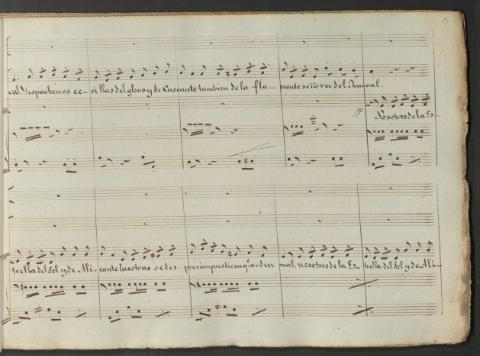 cal Despachenos ce- rillas del globo y de Cascante tambien de la fla- mante señores del Juncal.
Nosotros de la Es-
trella del Sol y de Ali- cante las otras se des- precian pues tienen q.e arden mal. nosotros de la Es- trella del Sol y de Ali-